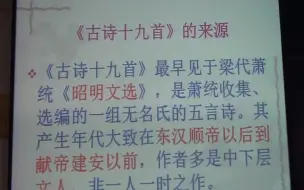 《古诗十九首》的来源
《古诗十九首》最早见于梁代萧
统《昭明文选》，是萧统收集、
选编的一组无名氏的五言诗。其
产生年代大致在东汉顺帝以后到
献帝建安以前，作者多是中下层
文人，非一人一时之作。